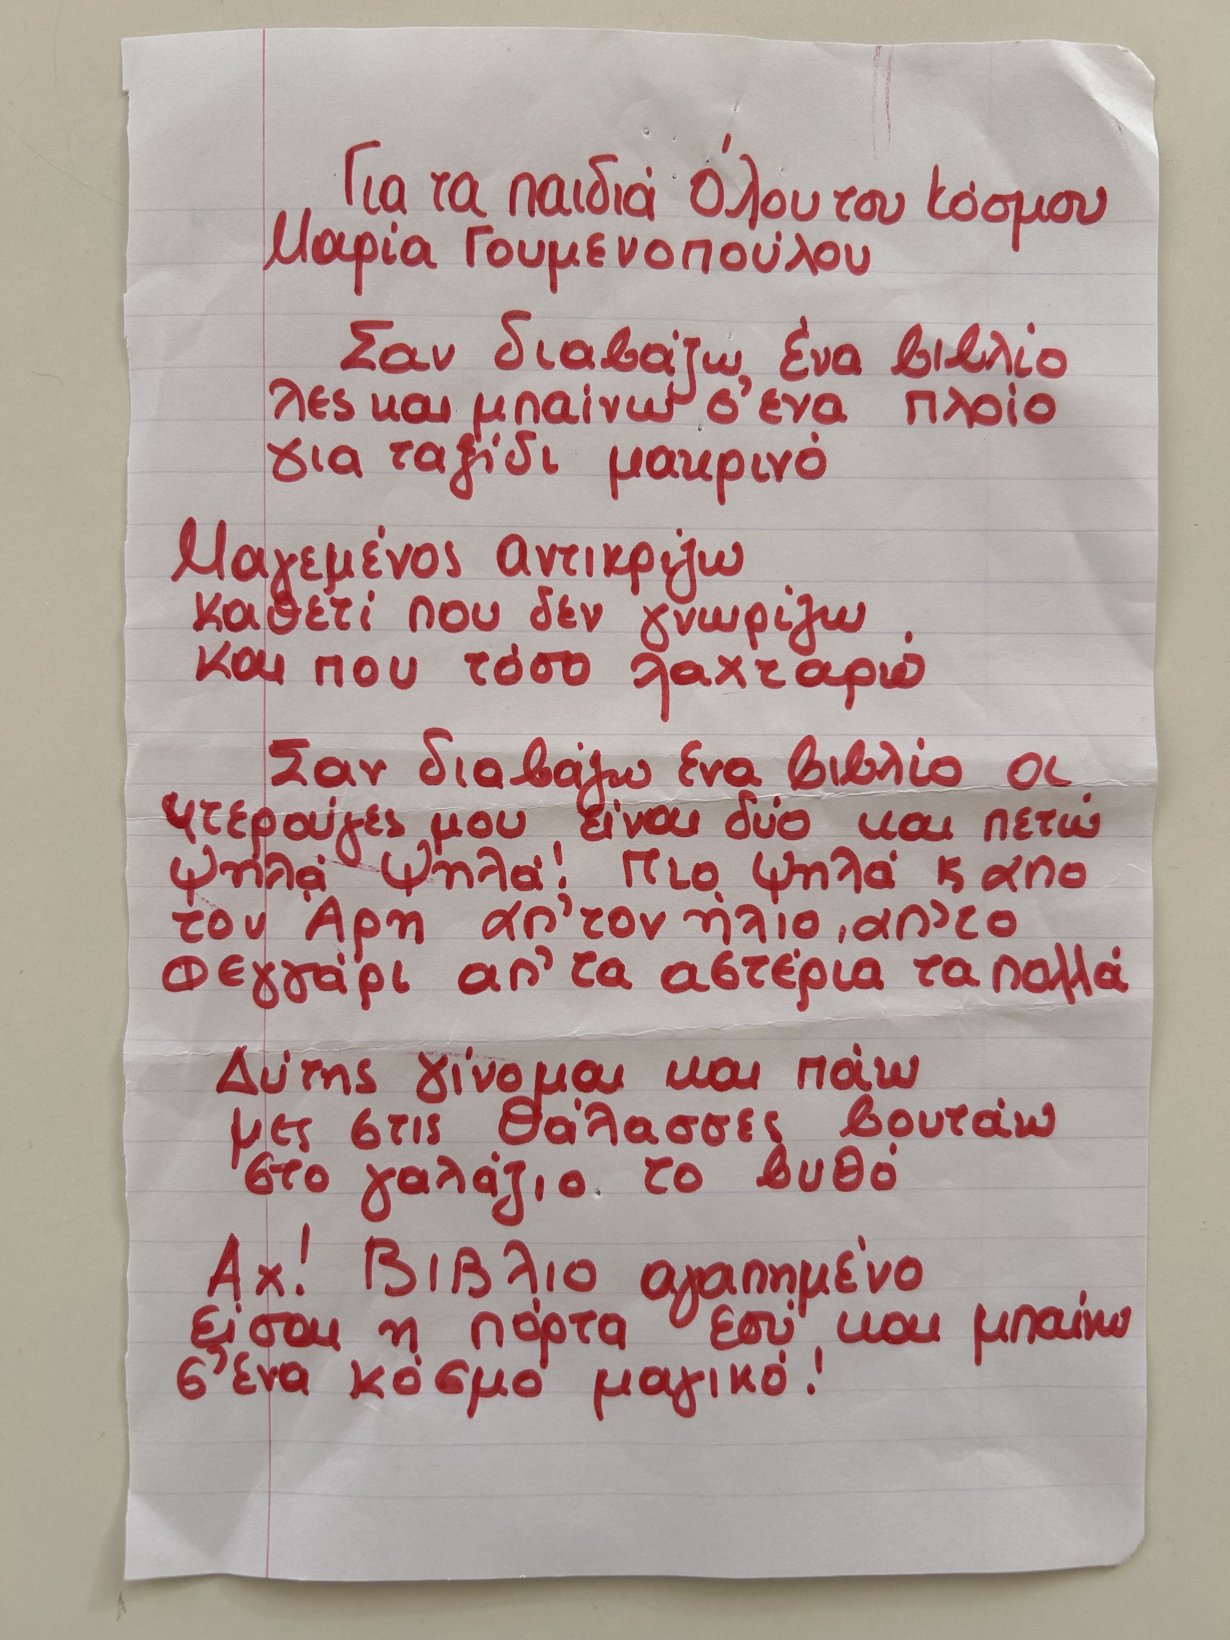 Για τα παιδιά Όλου του κόσμου
Μαρία Γουμενοπούλου
Σαν διαβάζω ένα βιβλίο
λες και μπαίνω σ' ενα πλοίο
για ταξίδι μακρινό
Μαγεμένος αντικρίζω
καθετί που δεν γνωρίζω
και που τόσο λαχταρώ
Σαν διαβάζω ενα βιβλίο οι
φτερούγες μου είναι δύο και πετώ
ψηλά ψηλά! Πιο ψηλά κ απο
τον Άρη απ' τον ήλιο, απ' το
φεγγάρι απ' τα αστέρια τα πολλά
Δύτης γίνομαι και πάω
μες στις θάλασσες βουτάω
στο γαλάζιο το βυθό
Αχ! Βιβλιο αγαπημένο
είσαι η πόρτα εσύ και μπαίνω
σ' ένα κόσμο μαγικό!